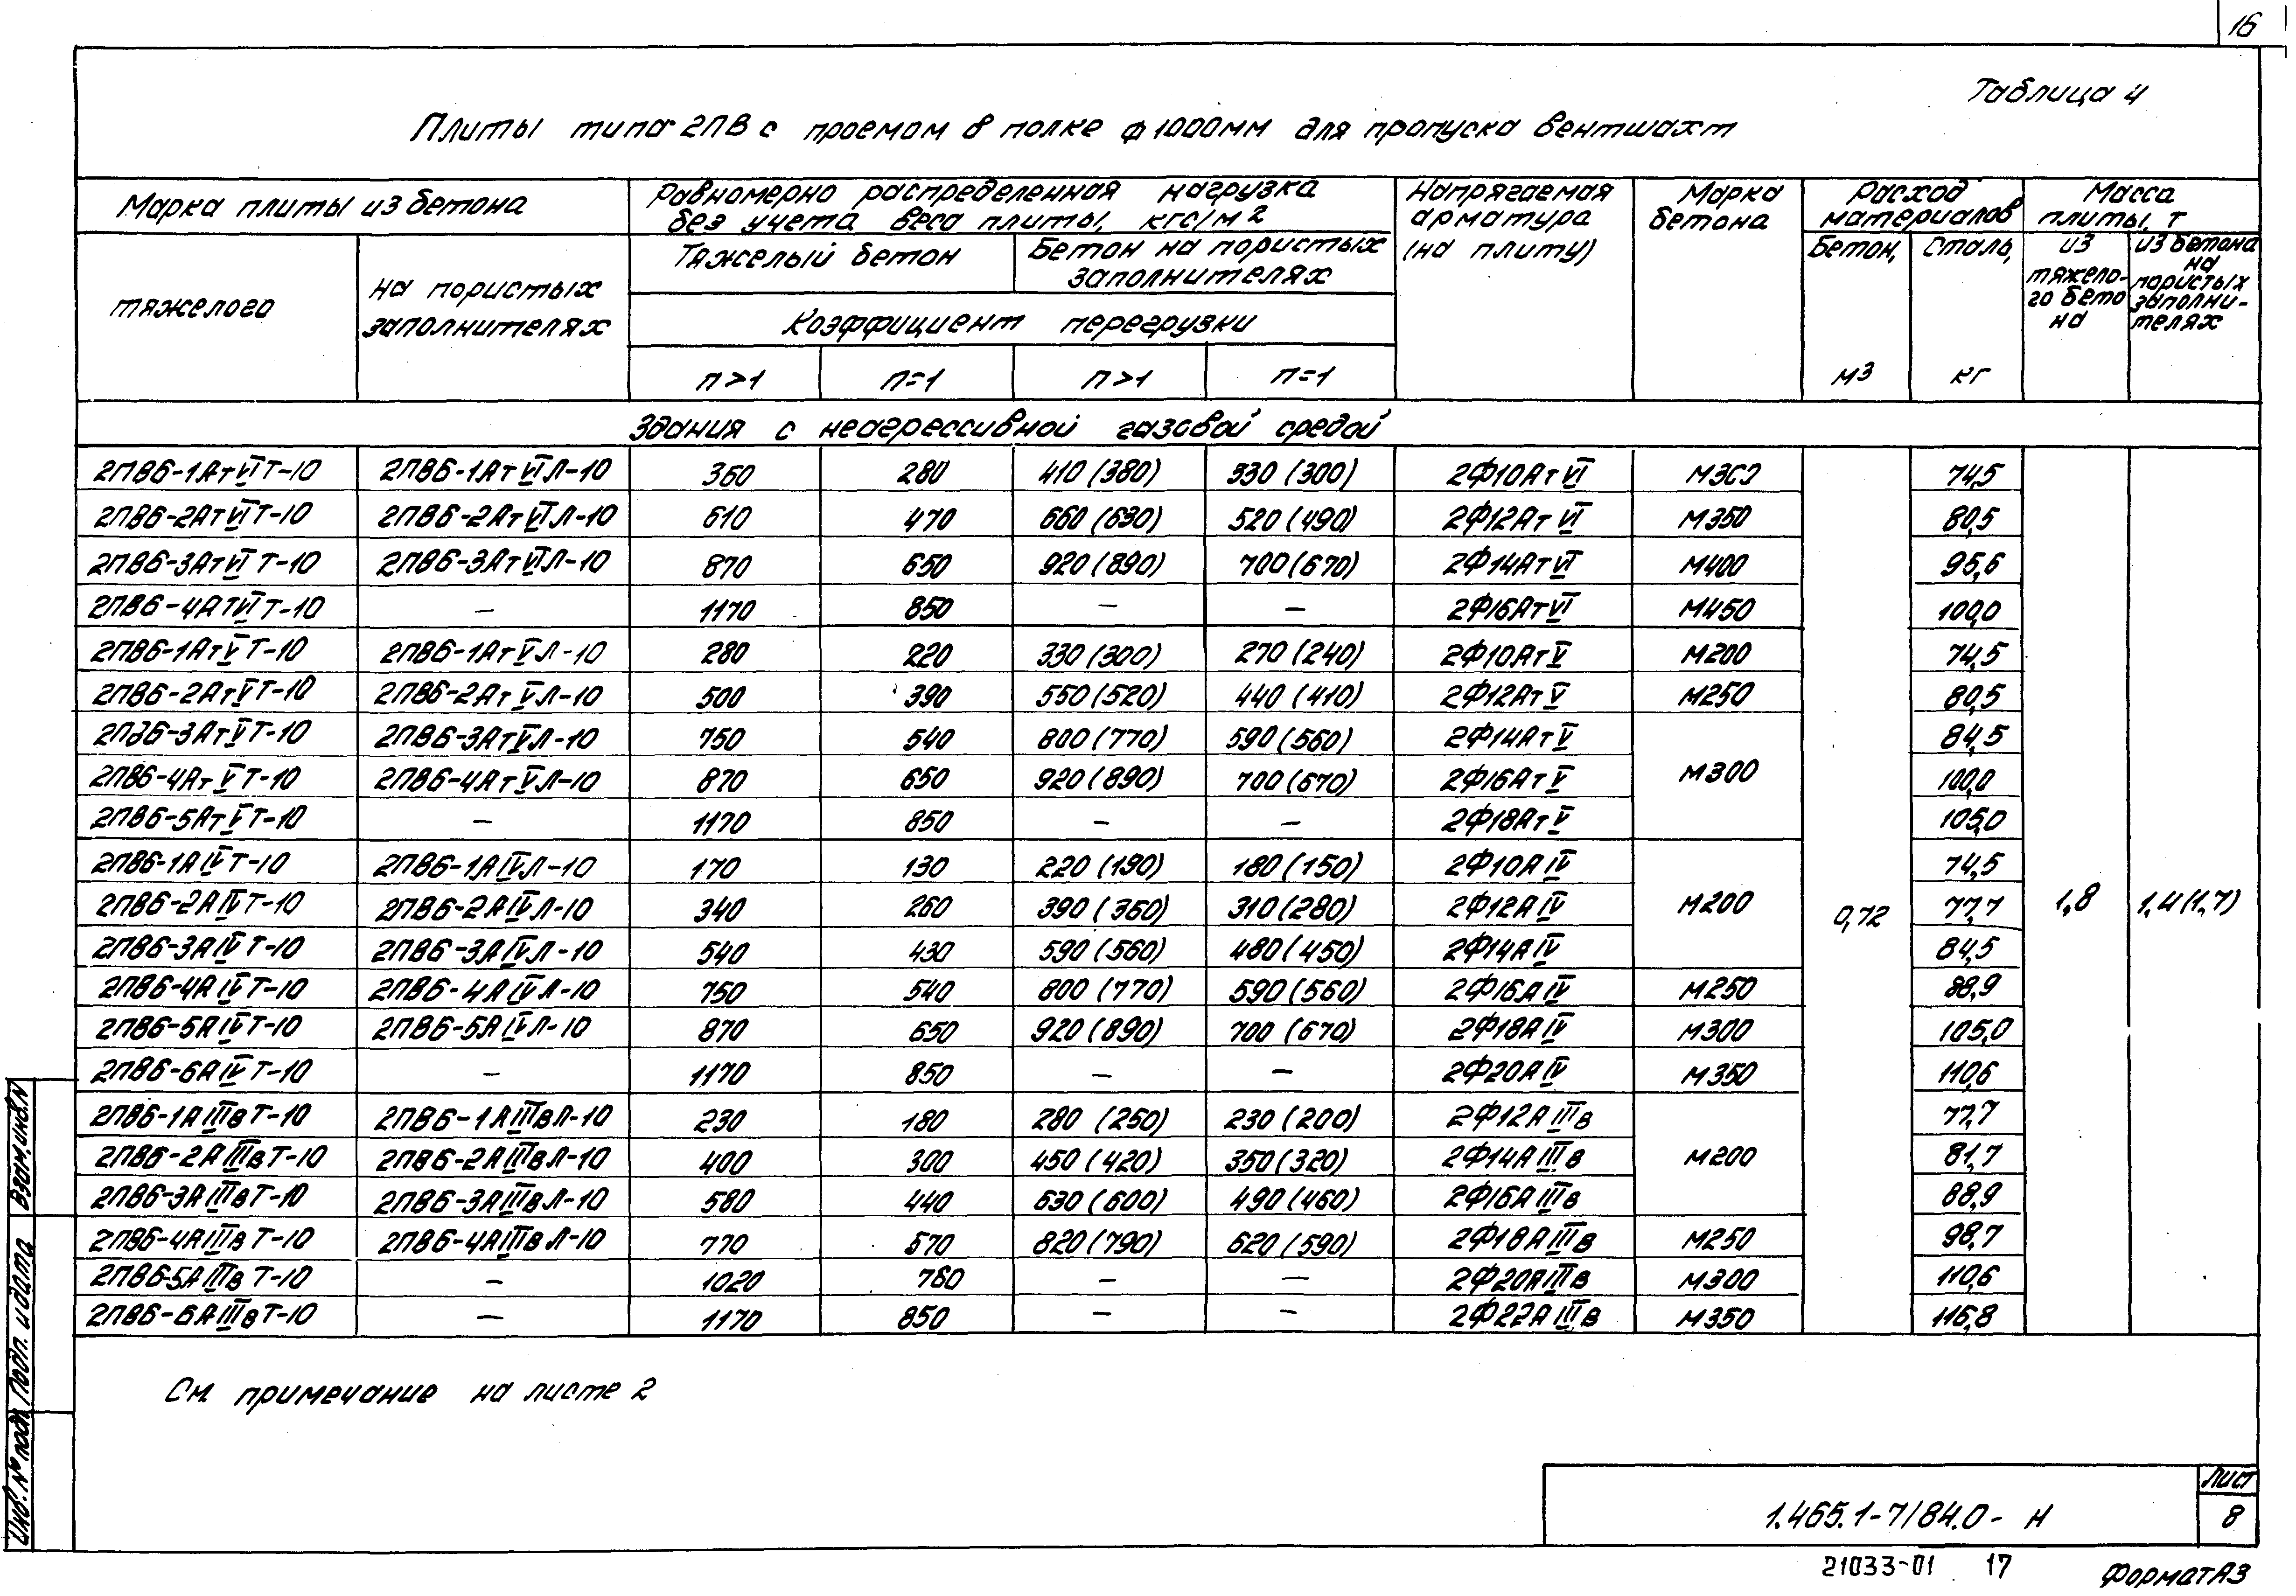 16
Таблица 4
Плиты типа 2ПВ с проемом в полке ф1000мм для пропуска вентшахт
Марка плиты из бетона
Равномерно распределенная нагрузка
без учета веса плиты, кгс/м2
Напрягаемая
арматура
(на плиту)
Марка
бетона
Расход
материалов
Масса
плиты, т
тяжелого
на пористых
заполнителях
Тяжелый бетон
Бетон на пористых
заполнителях
Коэффициент перегрузки
п>1 п=1 п>1 п=1
Бетон,
м3
Сталь,
кг
из
тяжело-
го бето
на
из бетона
на
пористых
заполни-
телях
Здания с неагрессивной газовой средой
2ПВ6-1АтVIТ-10 2ПВ6-1АтVIЛ-10 360 280 410 (380) 330 (300) 2Ф10АтVI М300 74,5
2ПВ6-2АтVIТ-10 2ПВ6-2АтVIЛ-10 610 470 660 (630) 520 (490) 2Ф12АтVI М350 80,5
2ПВ6-3АтVIТ-10 2ПВ6-3АтVIЛ-10 870 650 920 (890) 700 (670) 2Ф14АтVI М400 95,6
2ПВ6-4АтVIТ-10 – 1170 850 – – 2Ф16АтVI М450 100,0
2ПВ6-1АтVТ-10 2ПВ6-1АтVЛ-10 280 220 330 (300) 270 (240) 2Ф10АтV М200 74,5
2ПВ6-2АтVТ-10 2ПВ6-2АтVЛ-10 500 390 550 (520) 440 (410) 2Ф12АтV М250 80,5
2ПВ6-3АтVТ-10 2ПВ6-3АтVЛ-10 750 540 800 (770) 590 (560) 2Ф14АтV 84,5
2ПВ6-4АтVТ-10 2ПВ6-4АтVЛ-10 870 650 920 (890) 700 (670) 2Ф16АтV М300 100,0
2ПВ6-5АтVТ-10 – 1170 850 – – 2Ф18АтV 105,0
2ПВ6-1АIVТ-10 2ПВ6-1АIVЛ-10 170 130 220 (190) 180 (150) 2Ф10АIV 74,5
2ПВ6-2АIVТ-10 2ПВ6-2АIVЛ-10 340 260 390 (360) 310 (280) 2Ф12АIV М200 0,72 77,7 1,8 1,4 (1,7)
2ПВ6-3АIVТ-10 2ПВ6-3АIVЛ-10 540 430 590 (560) 480 (450) 2Ф14АIV 84,5
2ПВ6-4АIVТ-10 2ПВ6-4АIVЛ-10 750 540 800 (770) 590 (560) 2Ф16АIV М250 88,9
2ПВ6-5АIVТ-10 2ПВ6-5АIVЛ-10 870 650 920 (890) 700 (670) 2Ф18АIV М300 105,0
2ПВ6-6АIVТ-10 – 1170 850 – – 2Ф20АIV М350 110,6
2ПВ6-1АIIIвТ-10 2ПВ6-1АIIIвЛ-10 230 180 280 (250) 230 (200) 2Ф12АIIIв 77,7
2ПВ6-2АIIIвТ-10 2ПВ6-2АIIIвЛ-10 400 300 450 (420) 350 (320) 2Ф14АIIIв М200 81,7
2ПВ6-3АIIIвТ-10 2ПВ6-3АIIIвЛ-10 580 440 630 (600) 490 (460) 2Ф16АIIIв 88,9
2ПВ6-4АIIIвТ-10 2ПВ6-4АIIIвЛ-10 770 570 820 (790) 620 (590) 2Ф18АIIIв М250 98,7
2ПВ6-5АIIIвТ-10 – 1020 760 – – 2Ф20АIIIв М300 110,6
2ПВ6-6АIIIвТ-10 – 1170 850 – – 2Ф22АIIIв М350 116,8
См примечание на листе 2
Взам.инв.N
Подп. и дата
Инв. № подл.
1.465.1-7/84.0- Н
Лист
8
21033-01 17
Формат А3